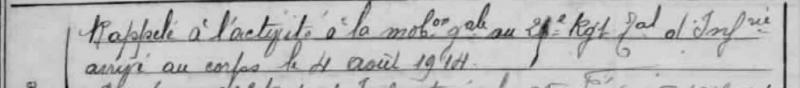 Rappelé à l'activité à la mob.on g.ale au 29e Rgt Jal d'Inf.rie
arrivé au corps le 4 août 1914.